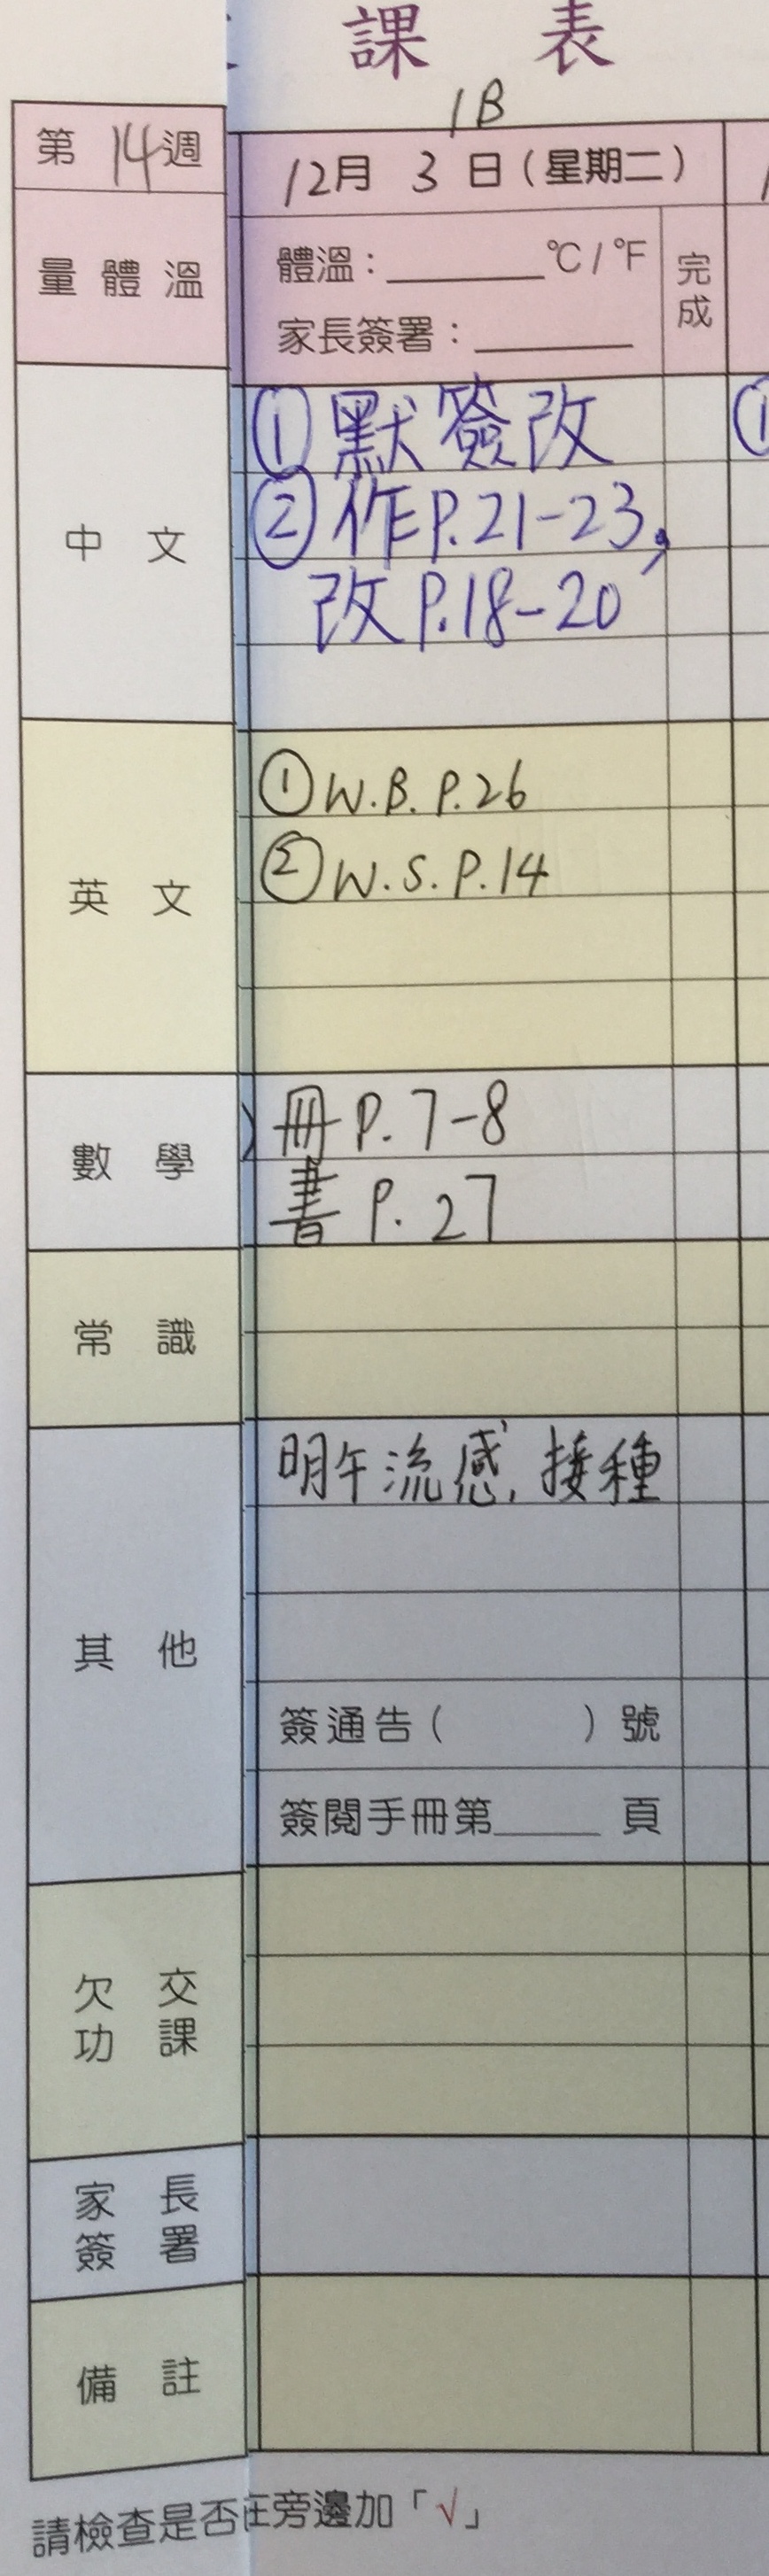 課 表
1B
第 14 週
12月 3 日(星期二)
量 體 溫
體溫:______℃/℉
完成
家長簽署:______
中 文
① 默簽改
② 作P.21-23,
改P.18-20
①
英 文
① W.B. P.26
② W.S. P.14
數 學
冊 P. 7-8
書 P. 27
常 識
其 他
明午流感, 接種
簽通告( )號
簽閱手冊第____頁
欠 交
功 課
家 長
簽 署
備 註
請檢查是否在旁邊加「√」